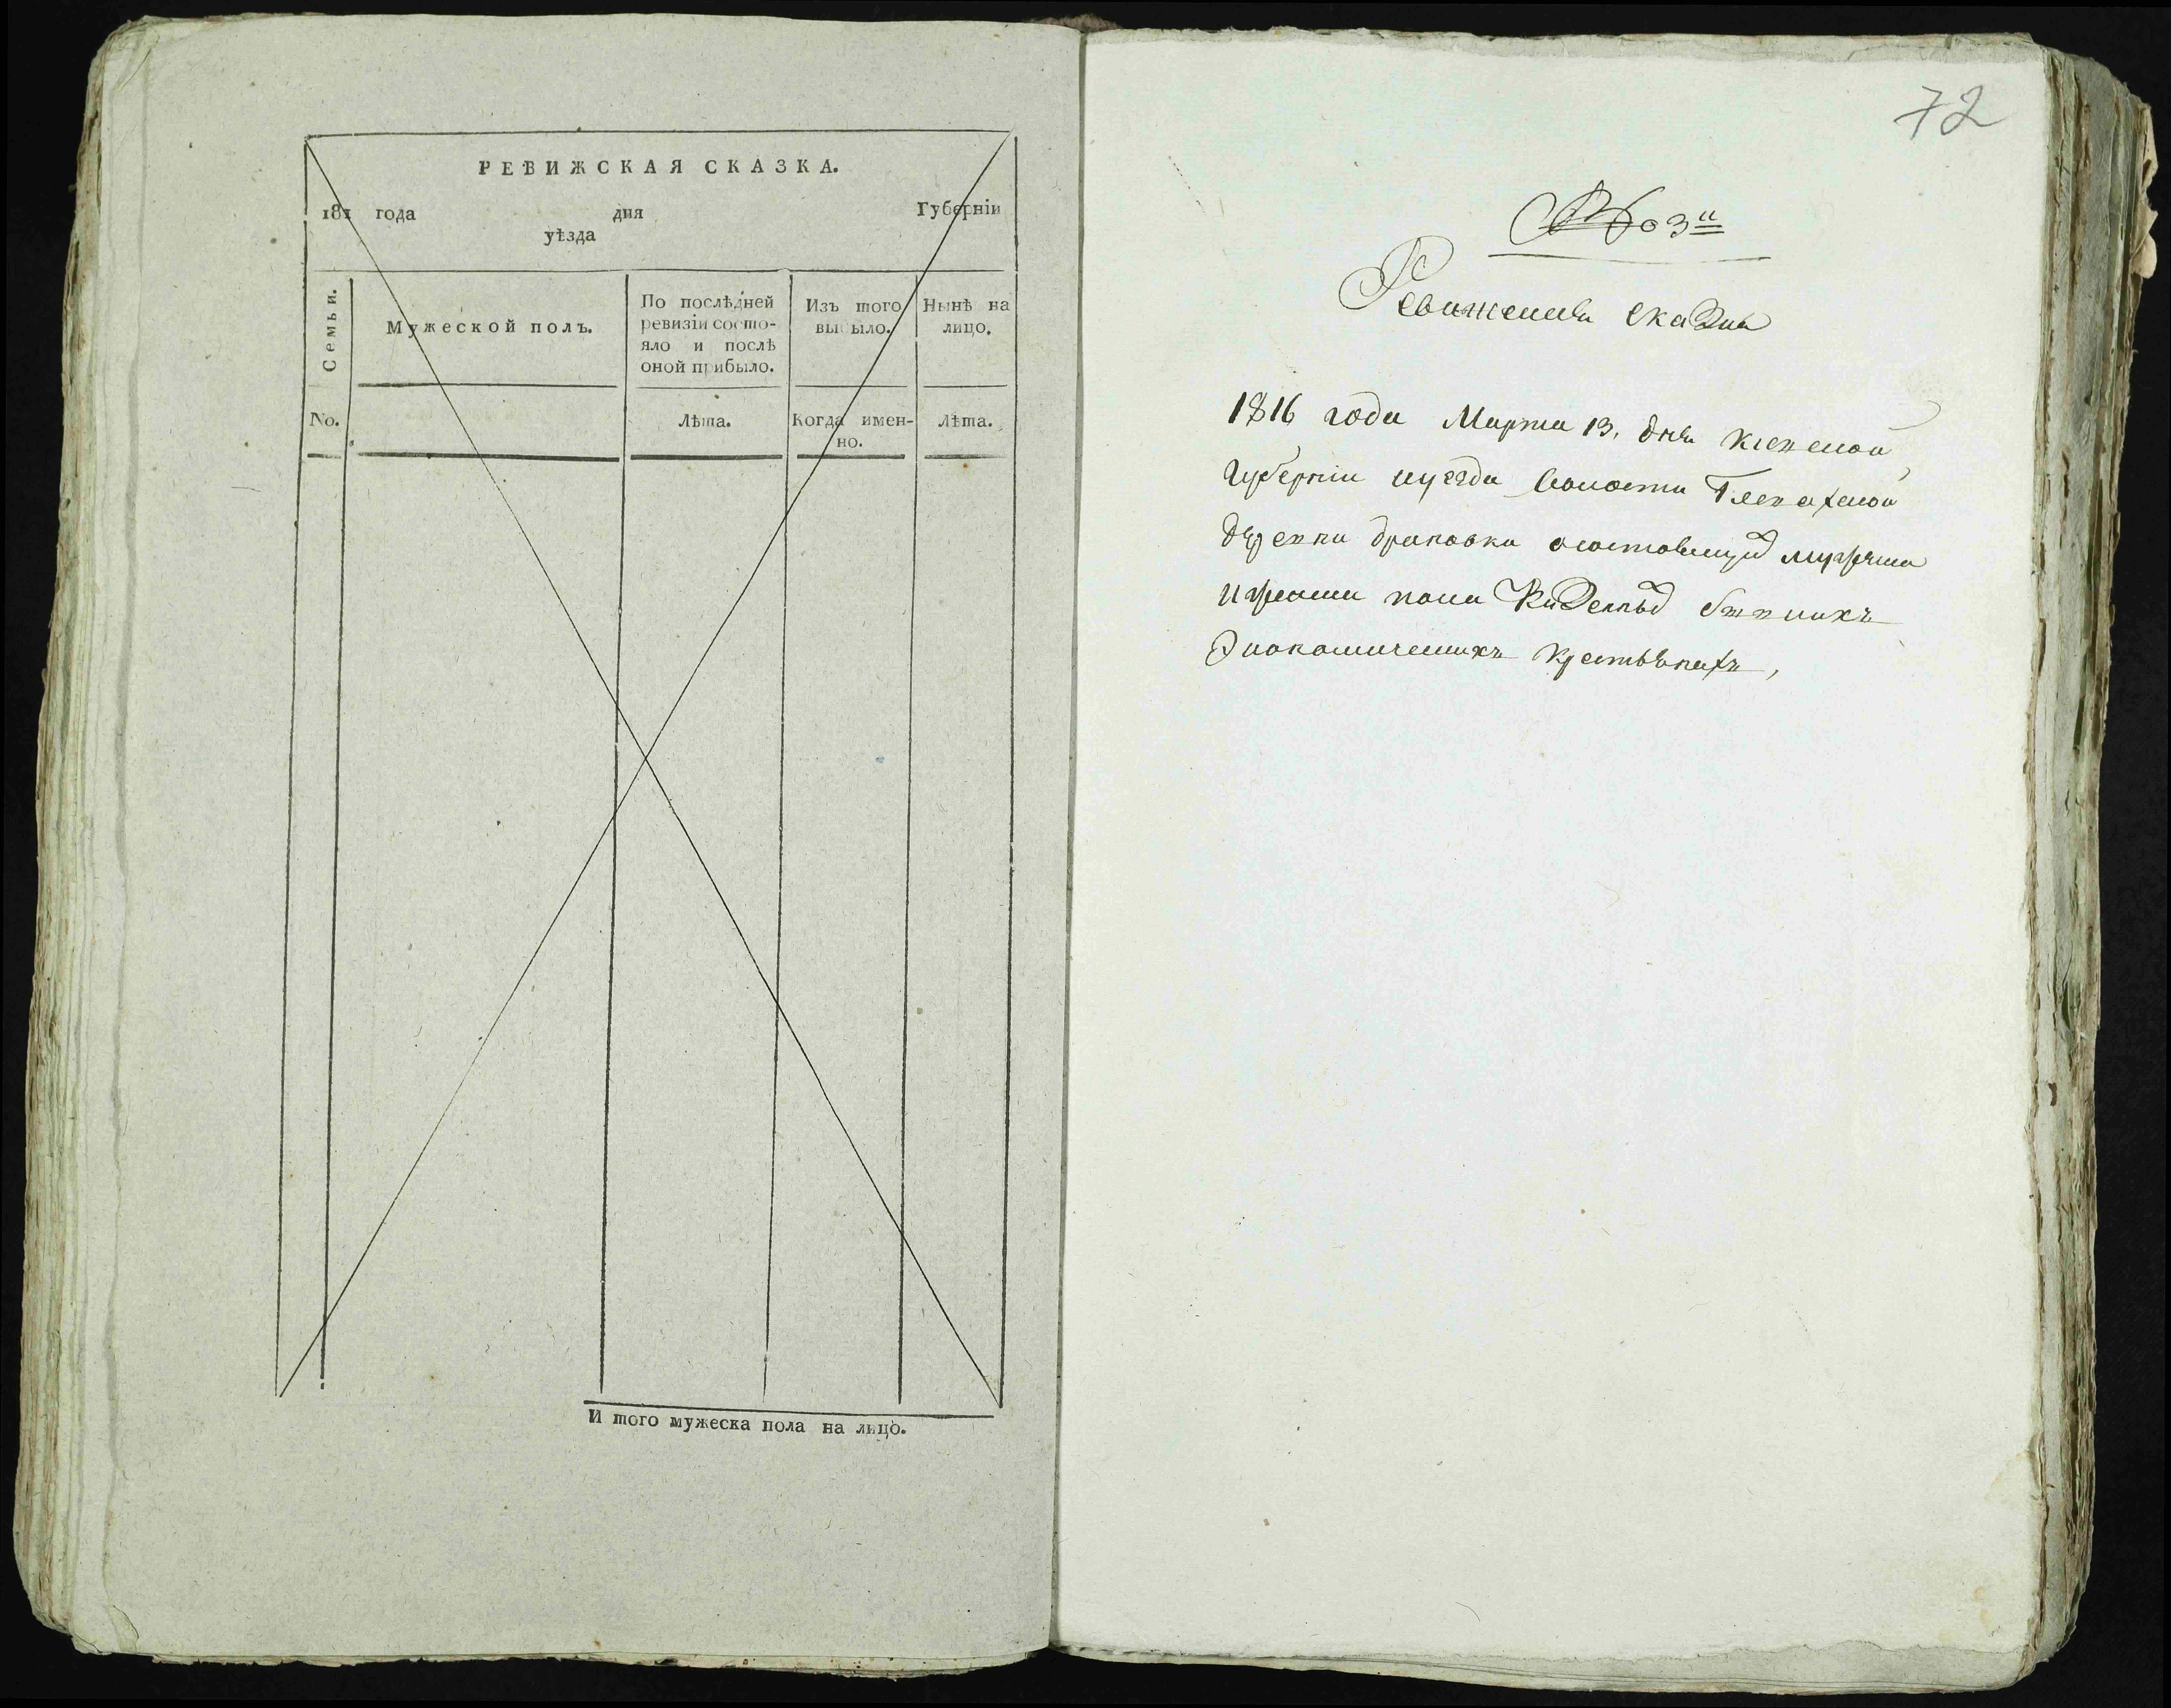 РЕВИЖСКАЯ СКАЗКА.
181 года дня Губерніи
уѣзда
Семьи.
Мужеской полъ.
По послѣдней
ревизіи состо-
яло и послѣ
оной прибыло.
Изъ того
выбыло.
Нынѣ на
лицо.
No.
Лѣта.
Когда имен-
но.
Лѣта.
И того мужеска пола на лицо.
72
Ревижская сказка
1816 года Марта 13. дня Киевской
Губерніи уезда волости
деревни состоящихъ мужеска
и женска пола Казенныхъ
Экономическихъ крестьянахъ,